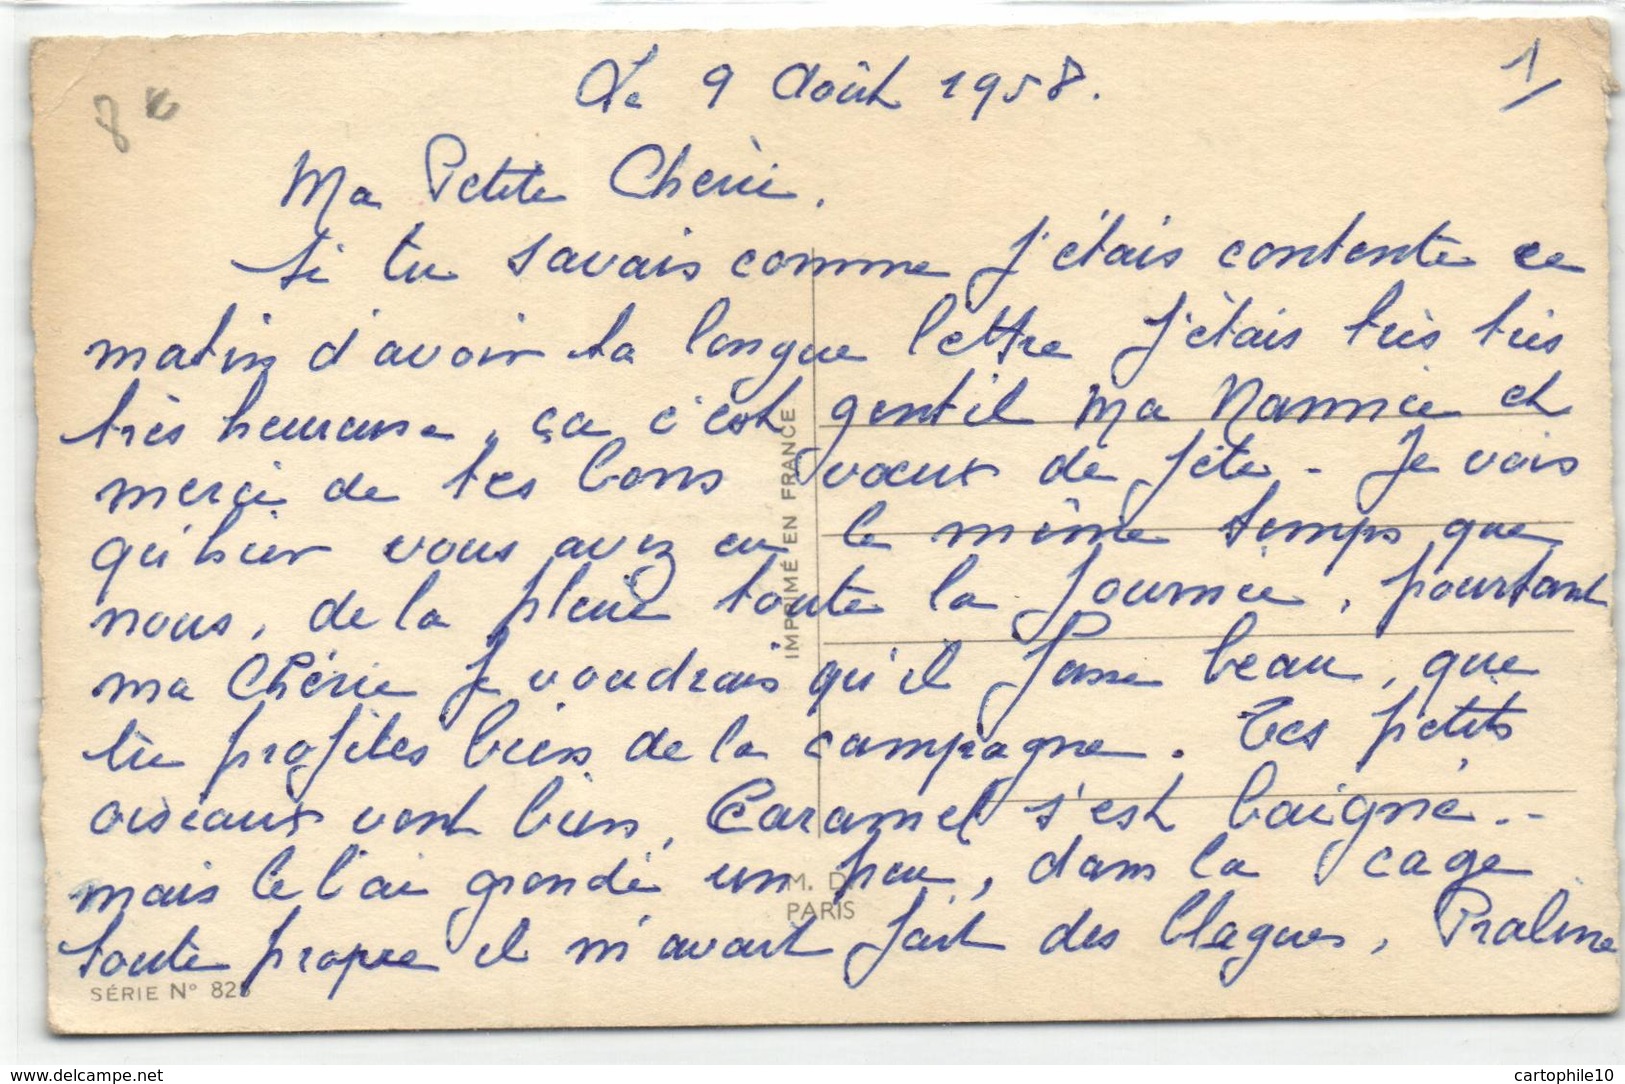 Le 9 Août 1958.
1/
Ma Petite Chérie,
Si tu savais comme j'étais contente ce
matin d'avoir ta longue lettre j'étais très très
très heureuse, ça c'est gentil ma Nannie et
merci de tes bons vœux de fête - Je vois
qu'hier vous avez eu le même temps que
nous, de la pluie toute la journée, pourtant
ma Chérie je voudrais qu'il fasse beau, que
tu profites bien de la campagne. Tes petits
oiseaux vont bien, Caramel s'est baigné..-
mais je l'ai grondé un peu, dans la cage
toute propre il m'avait fait des blagues, Praline
IMPRIMÉ EN FRANCE
M. D.
PARIS
SÉRIE N° 828
www.delcampe.net
cartophile10